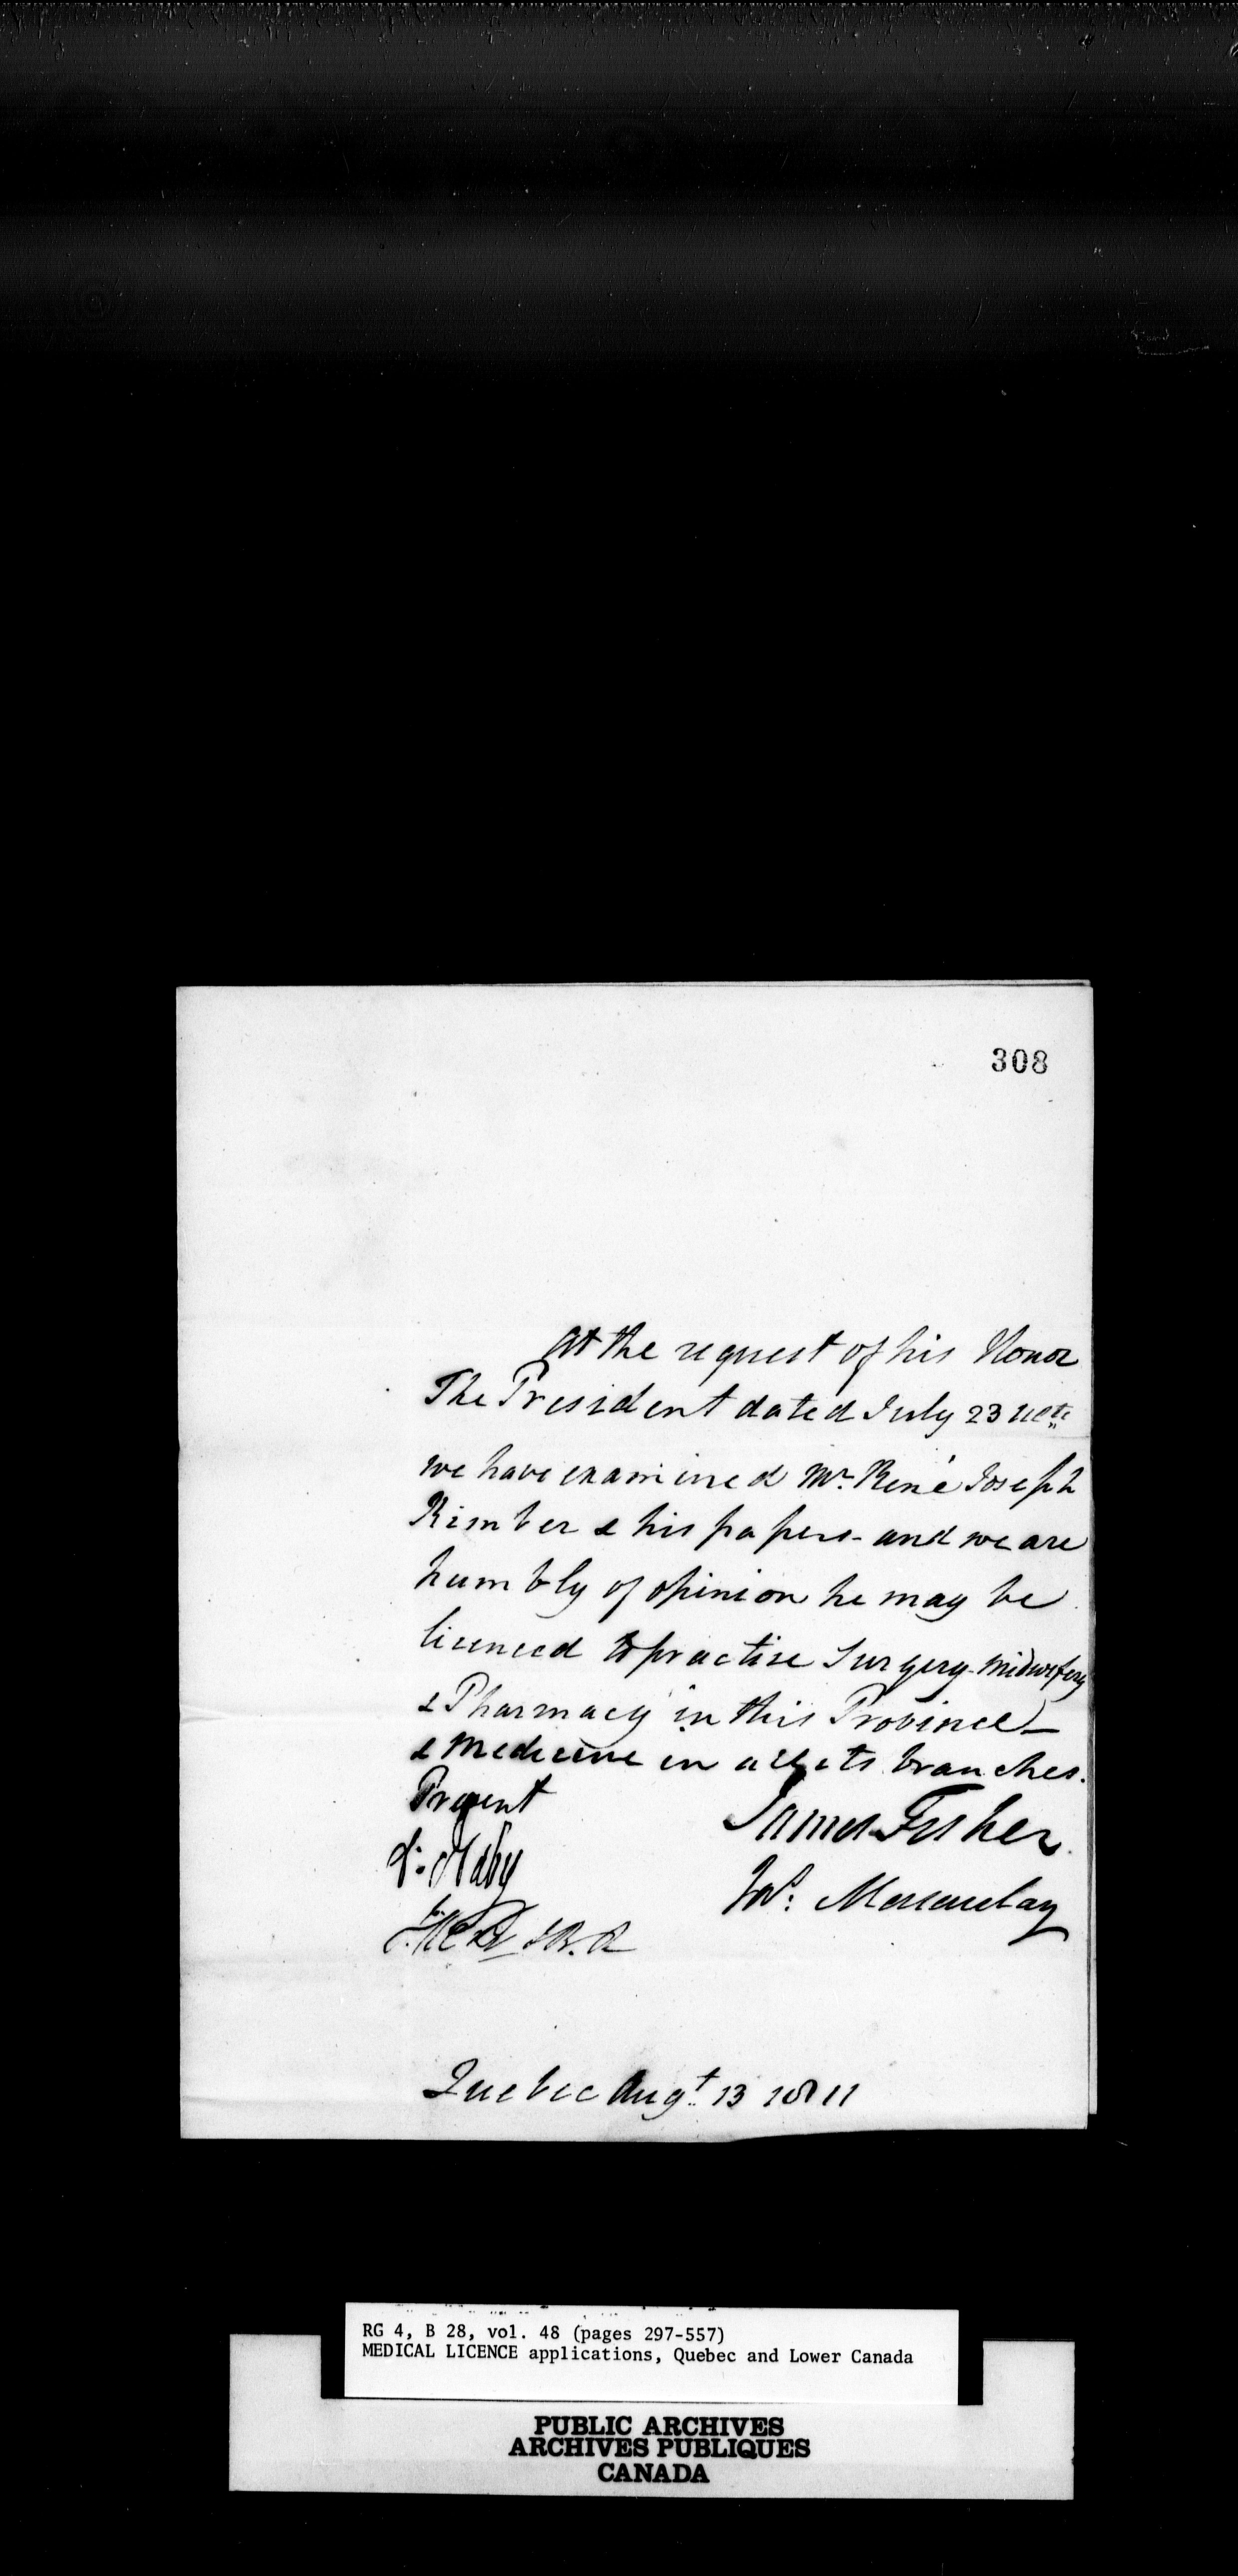 308
At the request of his Honor
The President dated July 23 ulto
we have examined Mr. René Joseph
Kimber & his papers - and we are
humbly of opinion he may be
licenced to practise Surgery Midwifery
& Pharmacy in this Province -
& Medicine in all its branches.
Present
James Fisher
Quebec Augt. 13 1811
RG 4, B 28, vol. 48 (pages 297-557)
MEDICAL LICENCE applications, Quebec and Lower Canada
PUBLIC ARCHIVES
ARCHIVES PUBLIQUES
CANADA